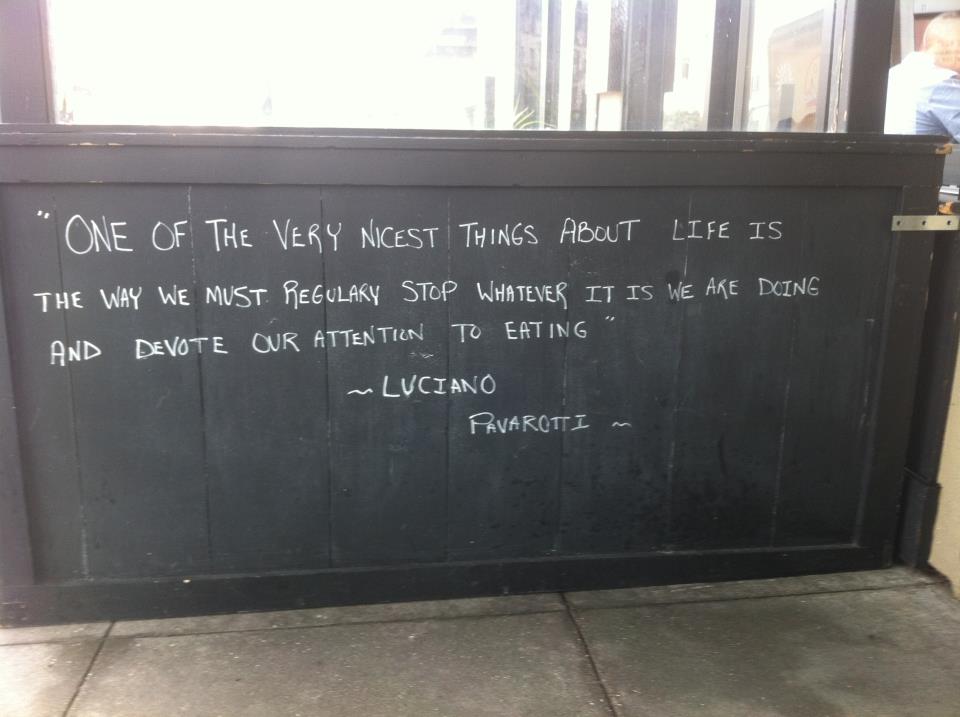 " ONE OF THE VERY NICEST THINGS ABOUT LIFE IS
THE WAY WE MUST REGULARY STOP WHATEVER IT IS WE ARE DOING
AND DEVOTE OUR ATTENTION TO EATING "
~ LUCIANO
PAVAROTTI ~